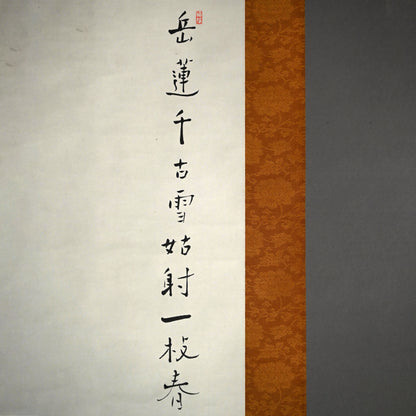 岳蓮千古雪姑射一枝春